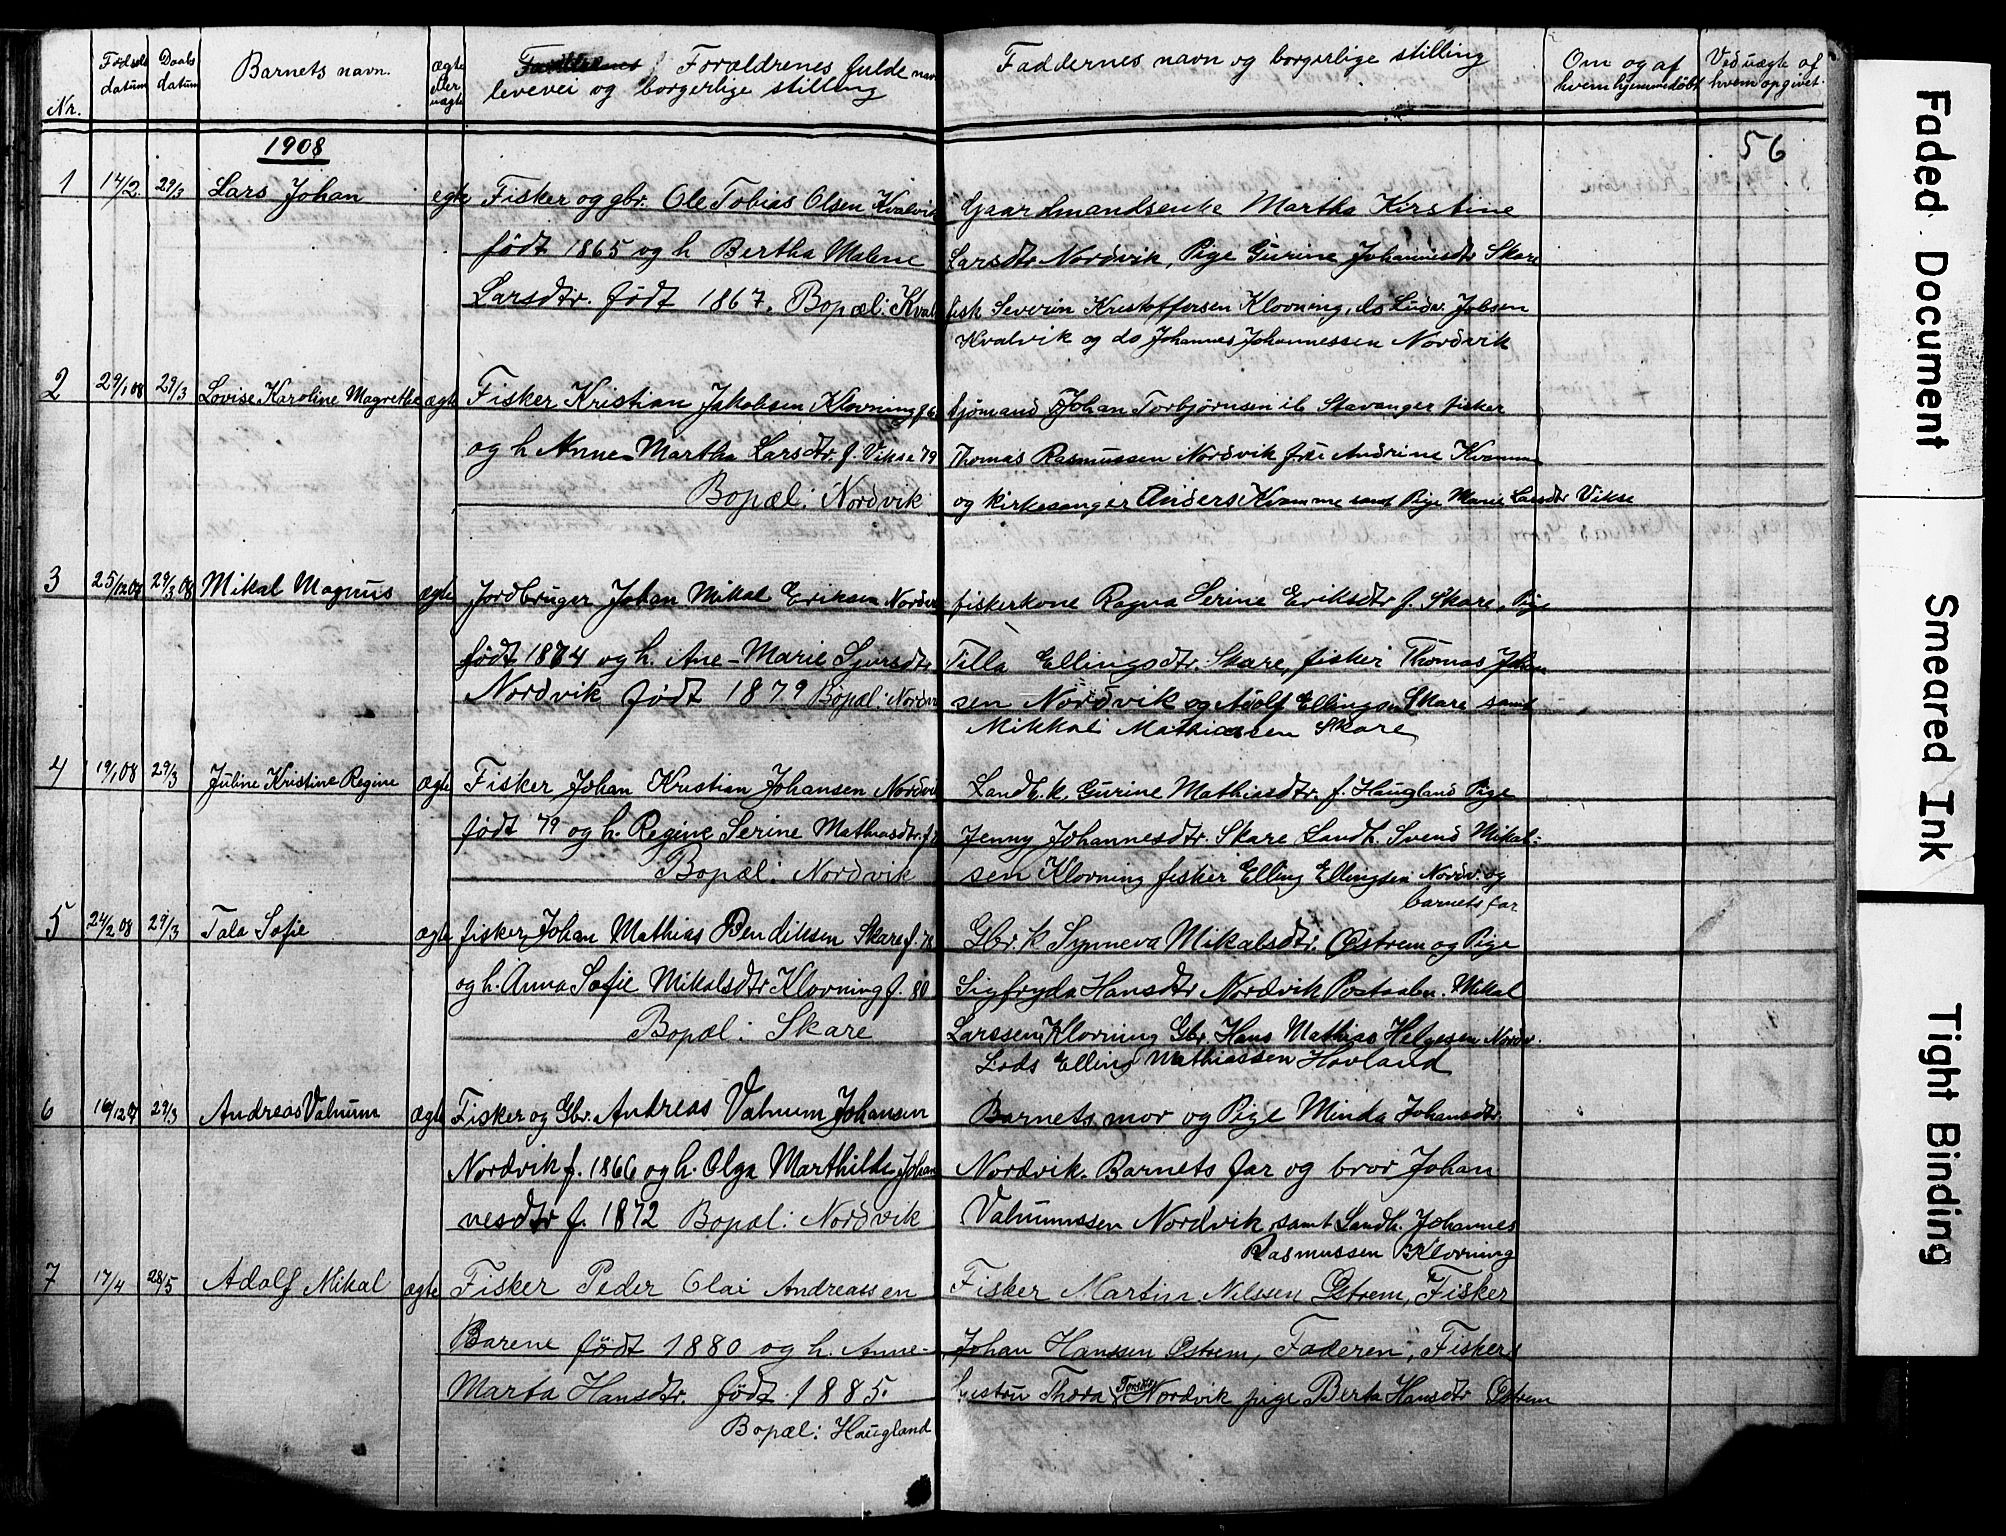 Nr.
Fødsels datum
Daabs datum
Barnets navn.
ægte eller uægte
Forældrenes fulde navn
levevei og borgerlige stilling
Faddernes navn og borgerlige stilling
Om og af
hvem hjemmedøbt
Ved uægte af
hvem opgivet.
1908
56
1 14/2 29/3 Lars Johan egte Fisker og gbr. Ole Tobias Olsen Kvalvik
født 1865 og h Bertha Malene
Larsdtr. født 1867. Bopæl: Kval
Gaardmandsenke Martha Kirstine
Larsdtr Nordvik, Pige Gurine Johannesdtr Skare
fisk Severin Kristoffersen Klovning, do Ludv. Jobsen
Kvalvik og do Johannes Johannessen Nordvik
2 29/1 08 29/3 Lovise Karoline Magrethe ægte Fisker Kristian Jakobsen Klovning
og h Anne Martha Larsdtr. f. Vikse 79
Bopæl: Nordvik
sjømand Johan Torbjørnsen Stavanger fisker
Thomas Rasmussen Nordvik frue Andrine Kvamme
og kirkesanger Anders Kvamme samt Pige Marie Larsdtr Vikse
3 25/12 07 29/3 08 Mikal Magnus ægte Jordbruger Johan Mikal Eriksen Nordv
født 1874 og h. Ane-Marie Sjursdtr
Nordvik født 1879 Bopæl: Nordv
fiskerkone Ragna Serine Eriksdtr f. Skare, Pige
Tilla Ellingsdtr. Skare, fisker Thomas Johan
sen Nordvik og Adolf Ellingsen Skare samt
Mikkal Mathiassen Skare
4 19/1 08 29/3 Juline Kristine Regine ægte Fisker Johan Kristian Johansen Nordvi
født 79 og h. Regine Serine Mathiasdtr. f.
Bopæl: Nordvik
Landh.k. Gurine Mathiasdtr. f. Haugland Pige
Jenny Johannesdtr. Skare Landh. Svend Mikal-
sen Klovning fisker Elling Ellingsen Nordv. og
barnets far
5 24/2 08 29/3 Tala Sofie ægte fisker Johan Mathias Bendiksen Skare f. 78
og h. Anna Sofie Mikalsdtr Klovning f. 80
Bopæl: Skare
Gbr. k Synneva Mikalsdtr. Østrem og Pige
Sigfryda Hansdtr Nordvik Postaabn. Mikal
Larssen Klovning Gbr. Hans Mathias Helgesen Nordv.
Lods Elling Mathiassen Hovland
6 16/12 07 29/3 Andreas Valnum ægte Fisker og Gbr. Andreas Valnum Johansen
Nordvik f. 1866 og h. Olga Marthilde Johan
nesdtr f. 1872 Bopæl: Nordvik
Barnets mor og Pige Minda Johansdtr.
Nordvik. Barnets far og bror Johan
Valnumssen Nordvik samt Landh. Johannes
Rasmussen Klovning
7 17/4 28/5 Adolf Mikal ægte Fisker Peder Olai Andreassen
Barene født 1880 og h. Anne-
Marta Hansdtr. født 1885.
Bopæl: Haugland
Fisker Martin Nilssen Østrem, Fisker
Johan Hanssen Østrem, Faderen, Fiskers
hustru Thora Torsdtr Nordvik pige Berta Hansdtr Østrem
Faded Document
Smeared Ink
Tight Binding